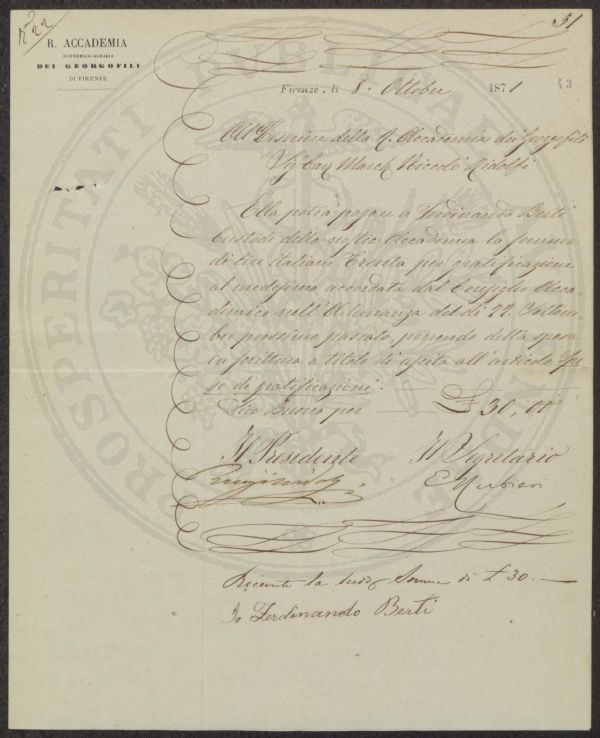 N° 22
31
R. ACCADEMIA
ECONOMICO-AGRARIA
DEI GEORGOFILI
DI FIRENZE
Firenze, li 8. Ottobre 1871
43
All Tesoriere della R. Accademia dei Georgofili
Sig. Cav. March. Niccolò Ridolfi
Ella potrà pagare a Ferdinando Berti
Custode della nostra Accademia la somma
di lire italiane Trenta per gratificazione
al medesimo accordata dal Consiglio Acca-
demico nell'Adunanza del dì 22. Settem-
bre prossimo passato, ponendo detta spesa
in scrittura a titolo di uscita all'articolo Spe-
se di gratificazioni.
Dico Buono per £ 30,00
Il Presidente
Il Segretario
E Rubieri
Ricevuto la Somma di £ 30. —
Io Ferdinando Berti
PROSPERITATI PUBLICAE